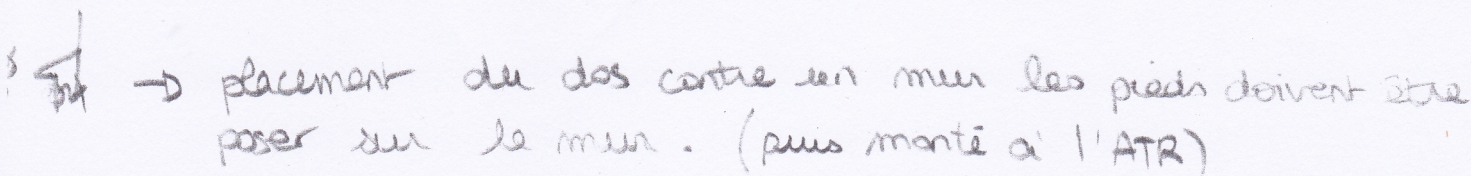 → placement du dos contre un mur les pieds doivent être
poser sur le mur. (puis monté à l'ATR)